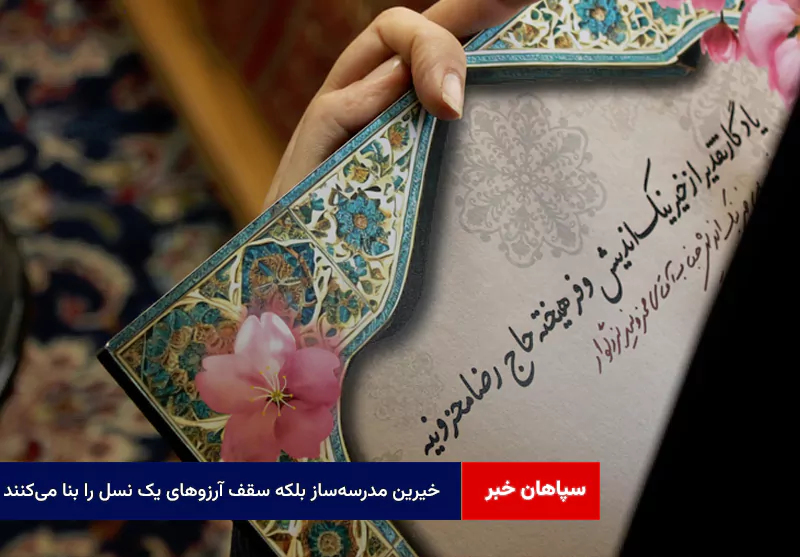 یادگار تقدیر از خیر نیک‌اندیش و فرهیخته حاج رضا محزونیه
سپاهان خبر
خیرین مدرسه‌ساز بلکه سقف آرزوهای یک نسل را بنا می‌کنند